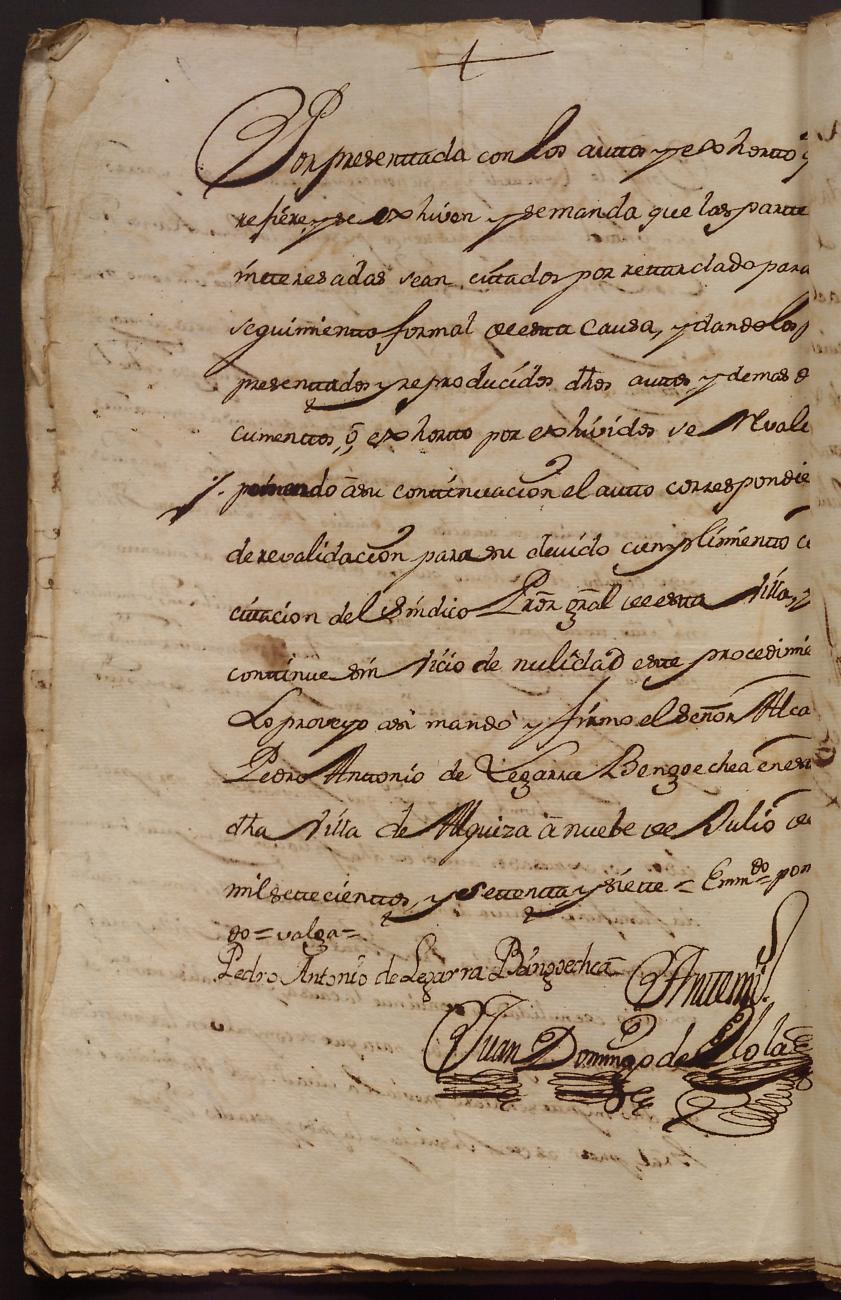 Por presenttada con los auttos y exhortto q
refiere, y se exhiven y se manda que las partte
intteresadas sean cittados por rettardado para
seguimientto formal de estta causa, y dandolos p
presenttados y reproducidos dhos auttos y demas do
cumenttos, q̃ exhortto por exhividos se Revali
poniendo â su conttinuacion el autto correspondie
de revalidacion para su devido cumplimientto co
cittacion del Sindico Prõr grãl de estta Villa, y
conttinue sin Vicio de nulidad estte procedimie
Lo proveyo asi mandò y firmo el señor Alca
Pedro Anttonio de Legarra Bengoechea en estta
dha Villa de Alquiza â nuebe de Julio de
mil settecienttos, y settentta y siette = Emmdo = pon
do = valga =
Pedro Antonio de Legarra Bengoechea
Antemi
Juan Domingo de Olola